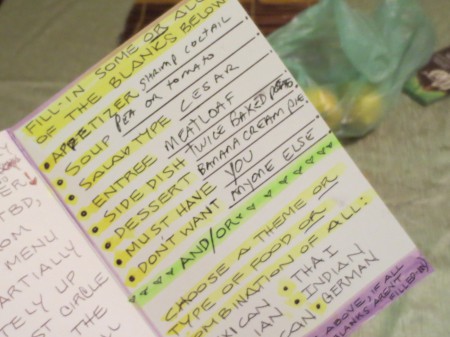 FILL-IN SOME OR ALL
OF THE BLANKS BELOW
APPETIZER SHRIMP COCTAIL
SOUP PEA OR TOMATO
SALAD TYPE CESAR
ENTREE MEATLOAF
SIDE DISH TWICE BAKED
DESSERT BANANA CREAM PIE
MUST HAVE YOU
DON'T WANT ANYONE ELSE
AND/OR
CHOOSE A THEME OR
TYPE OF FOOD OR
COMBINATION OF ALL:
XICAN THAI
IAN INDIAN
CAN GERMAN
ABOVE, IF ALL
BLANKS AREN'T
FILLED IN)
ER!
TBD,
OM
MENU
ARTIALLY
TELY UP
ST CIRCLE
THE